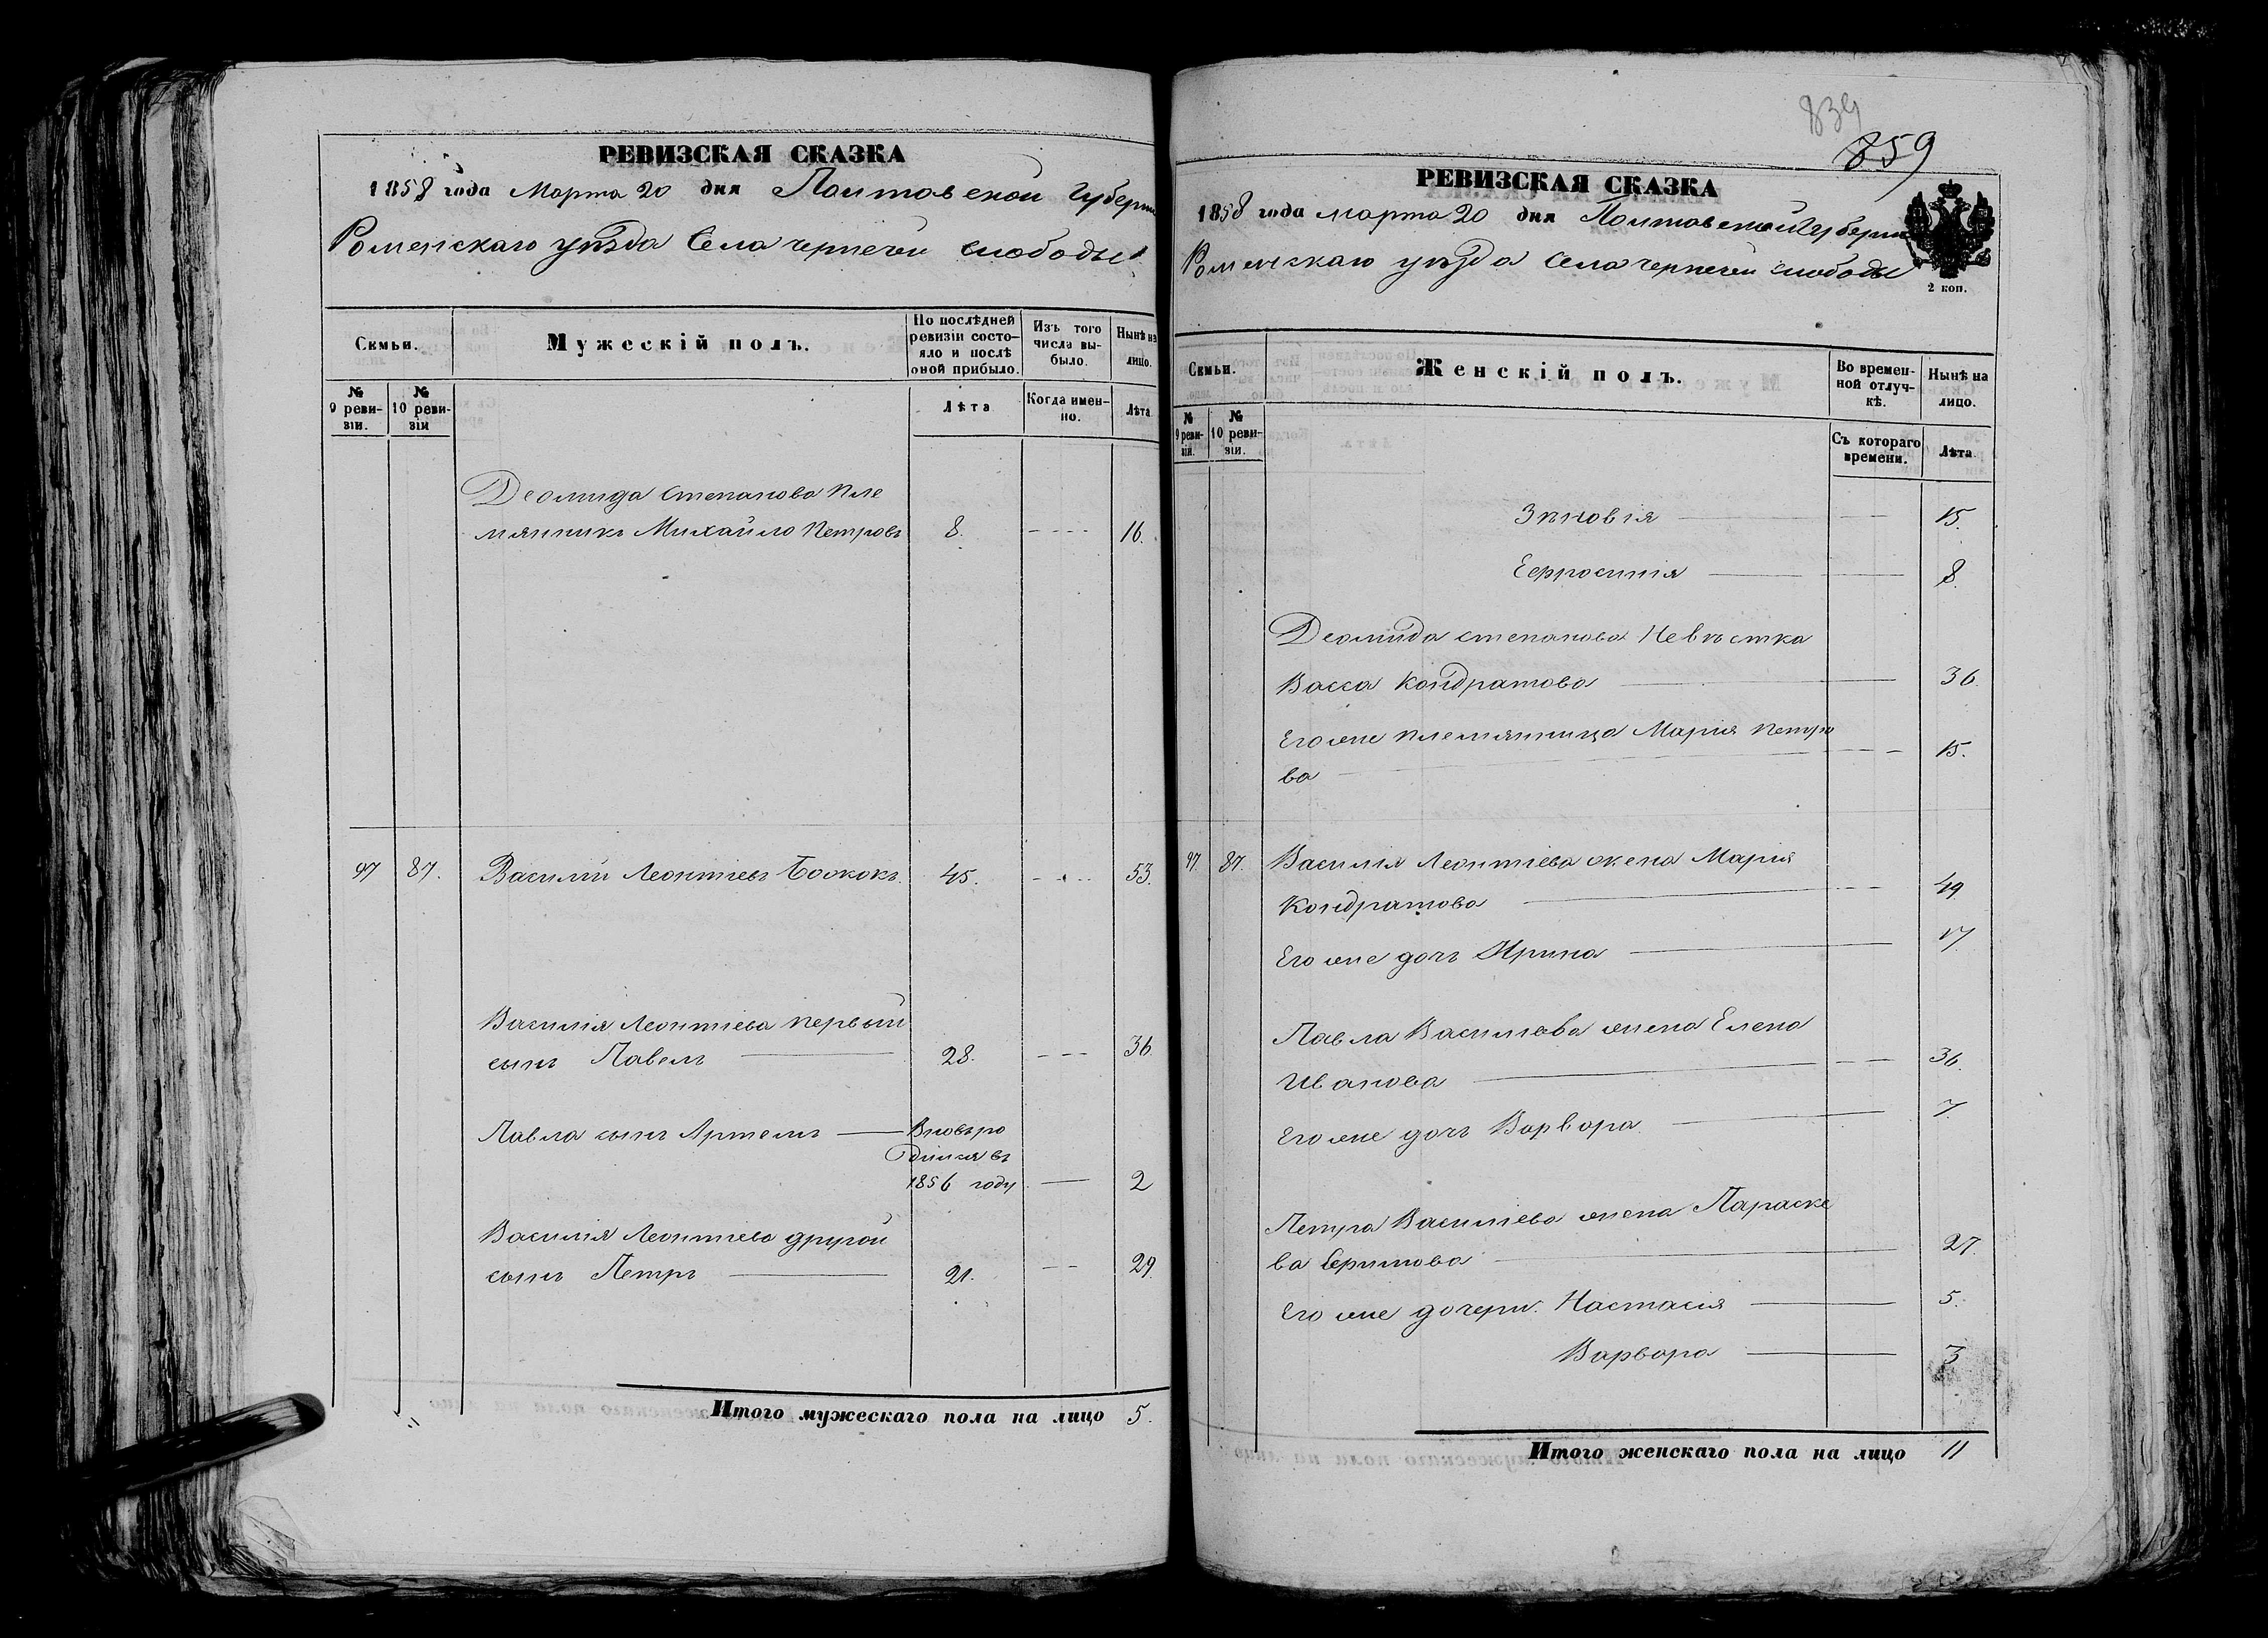 РЕВИЗСКАЯ СКАЗКА
1858 года Марта 20 дня Полтавской Губерніи
Роменскаго уѣзда Села чернечей слободы
Семьи.
Мужескій полъ.
По послѣдней ревизіи состо-яло и послѣ оной прибыло.
Изъ того числа вы-было.
Нынѣ на лицо.
№ 9 реви-зіи.
№ 10 реви-зіи
Лѣта
Когда имен-но.
Лѣта
Деомида Степанова пле
мянникъ Михайло Петровъ 8. 16.
97 87. Василій Леонтіевъ 45. 53.
Василія Леонтіева первый
сынъ Павелъ 28. 36.
Павла сынъ Артемъ Вновь ро
дился въ
1856 году 2
Василія Леонтіева другой
сынъ Петръ 21. 29.
Итого мужескаго пола на лицо 5.
839
859
РЕВИЗСКАЯ СКАЗКА
1858 года марта 20 дня Полтавской Губерніи
Роменскаго уѣзда Села чернечей слободы
2 коп.
Семьи.
Женскій полъ.
Во времен-ной отлуч-кѣ.
Нынѣ на лицо.
№ 9 реви-зіи.
№ 10 реви-зіи.
Съ котораго времени.
Лѣта.
Зѣновія 15.
Ефросинія 8.
Деомида степанова Невѣстка
Васса Кондратова 36
Его же племянница Марія Петро
ва 15.
97. 87. Василія Леонтіева жена Марія
Кондратова 49
Его же дочь Ирина 17.
Павла Василіева жена Елена
Иванова 36.
Его же дочь Варвара 7.
Петра Василіева жена Параске
ва 27.
Его же дочери Настасія 5.
Варвара 3
Итого женскаго пола на лицо 11